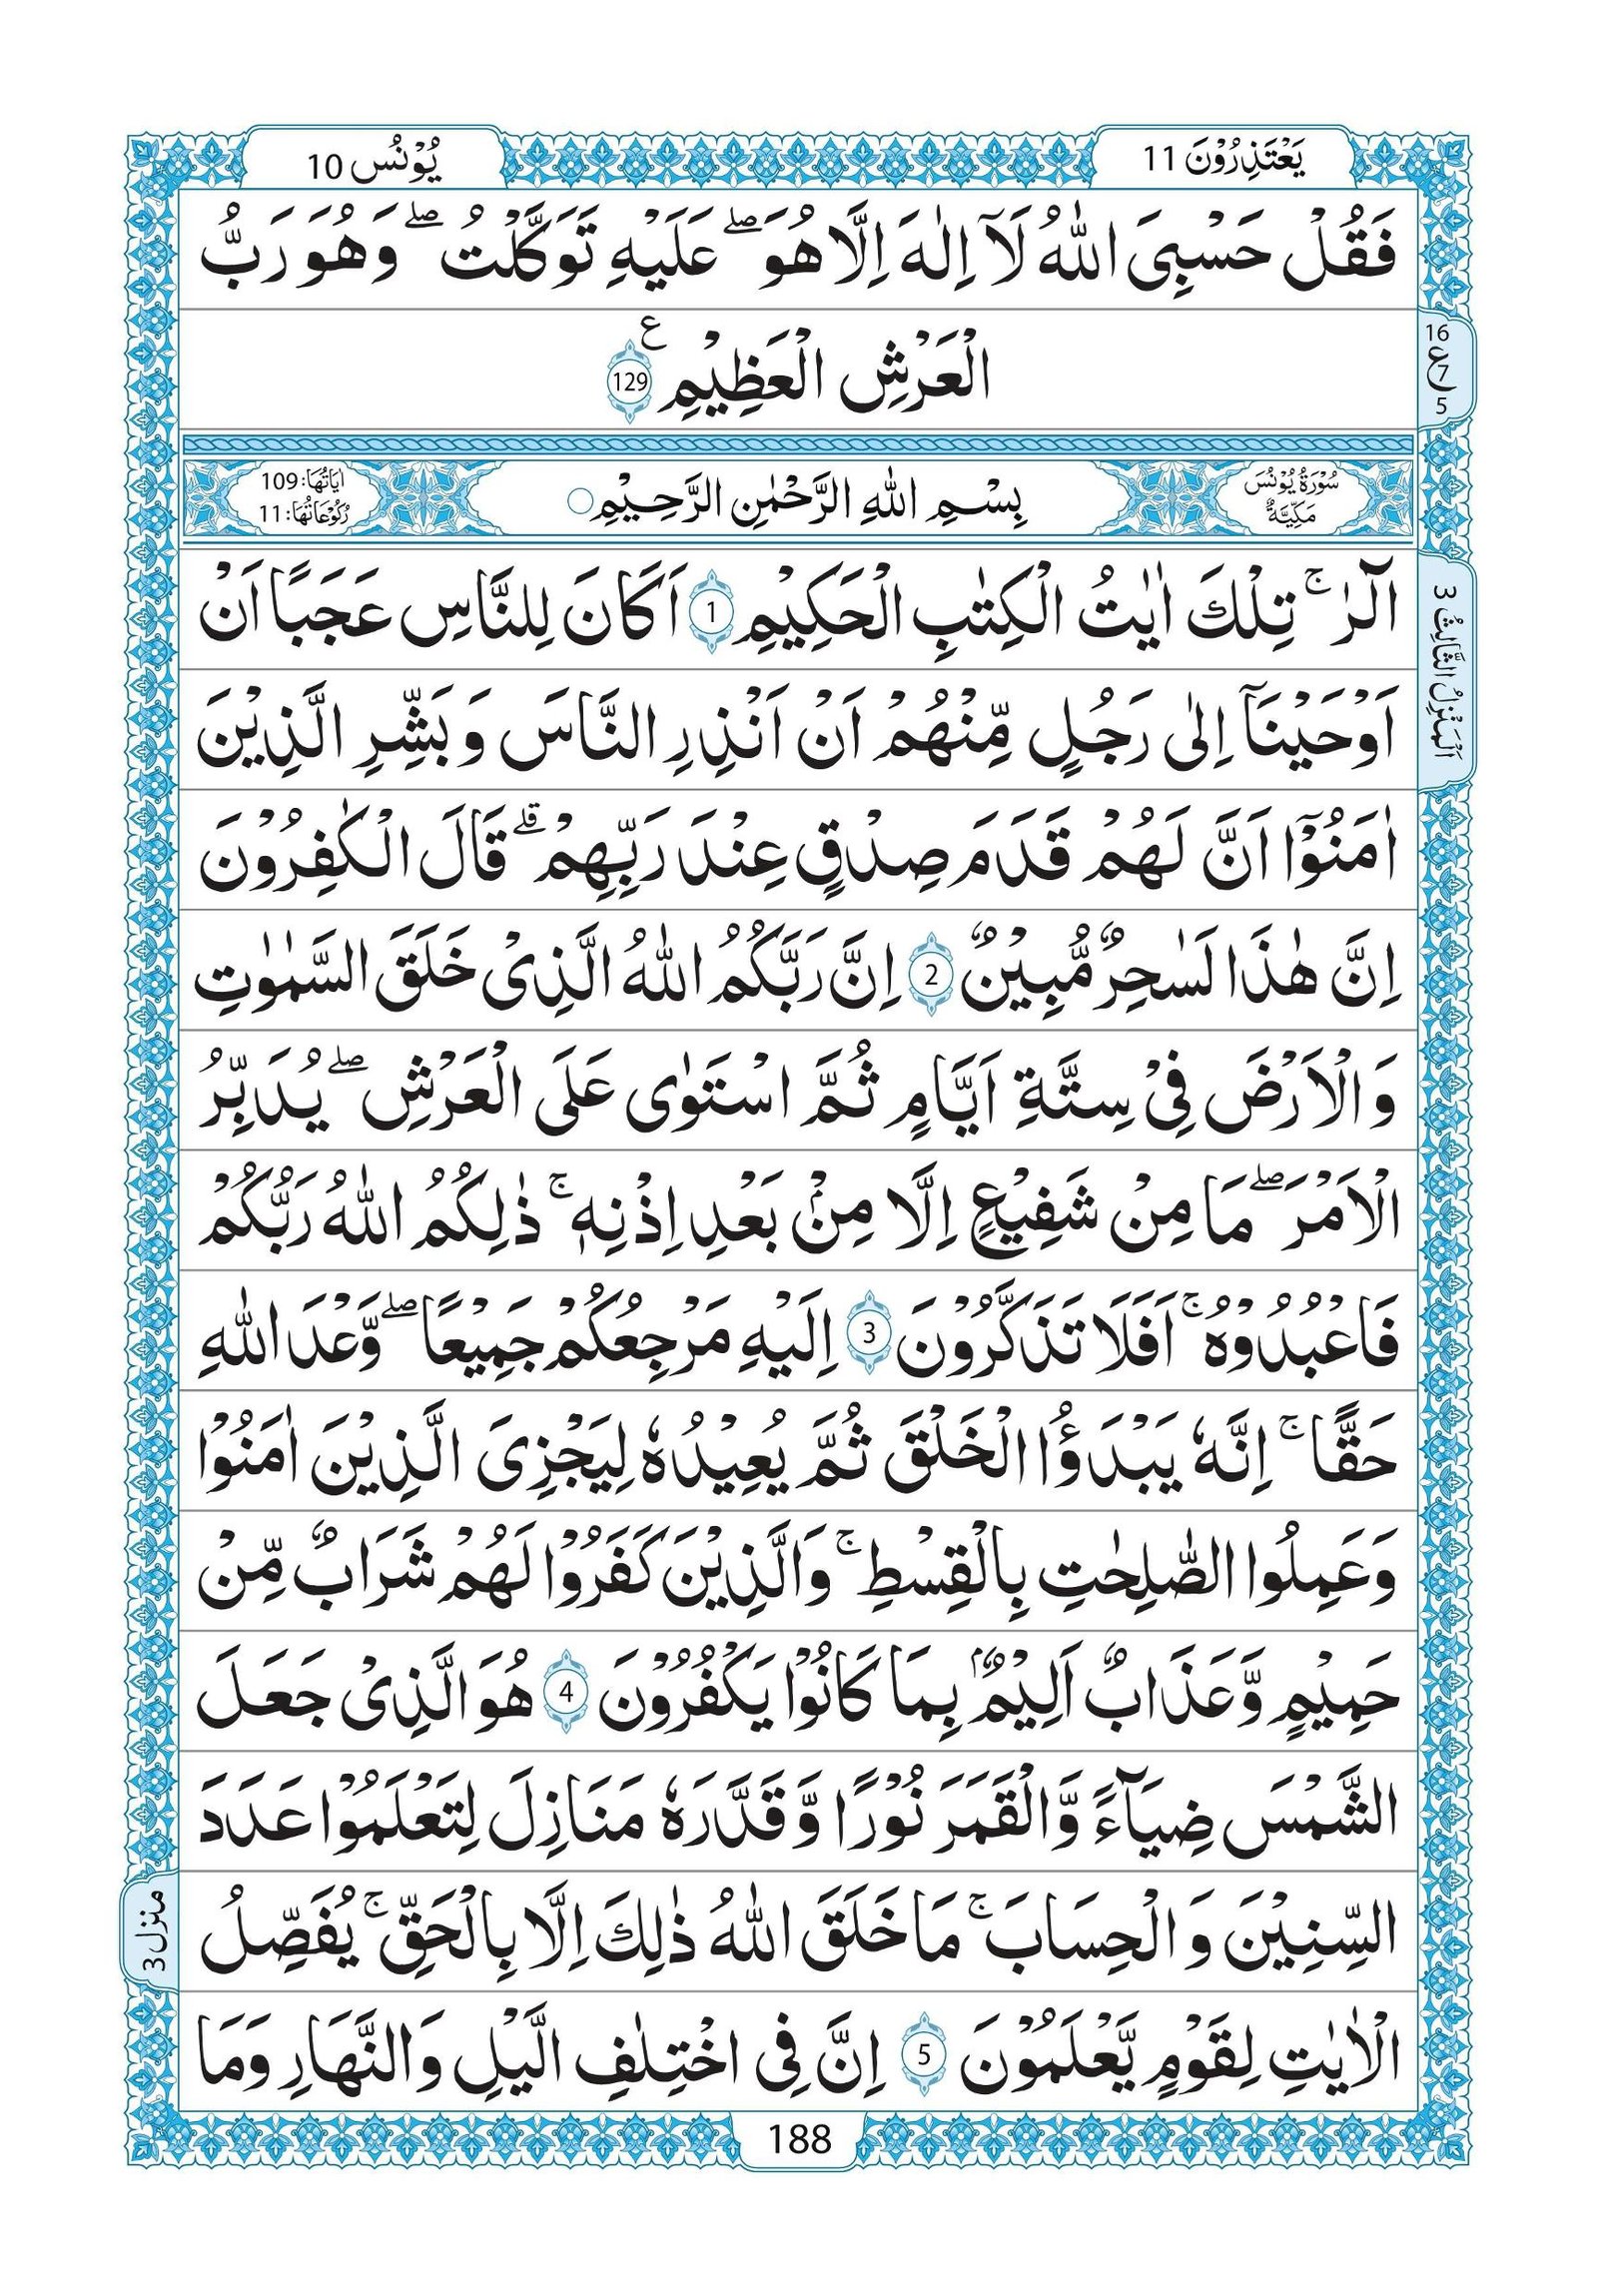 يَعْتَذِرُوْنَ 11
يُوْنُس 10
فَقُلْ حَسْبِيَ اللّٰهُ لَآ اِلٰهَ اِلَّا هُوَ ۖ عَلَيْهِ تَوَكَّلْتُ ۖ وَهُوَ رَبُّ
الْعَرْشِ الْعَظِيْمِ ع 129
16
ع 7
5
سُوْرَةُ يُوْنُسَ
مَكِّيَّةٌ
بِسْمِ اللّٰهِ الرَّحْمٰنِ الرَّحِيْمِ ○
اٰيَاتُهَا: 109
رُكُوْعَاتُهَا: 11
الٓرٰ ۚ تِلْكَ اٰيٰتُ الْكِتٰبِ الْحَكِيْمِ 1 اَكَانَ لِلنَّاسِ عَجَبًا اَنْ
اَوْحَيْنَآ اِلٰى رَجُلٍ مِّنْهُمْ اَنْ اَنْذِرِ النَّاسَ وَ بَشِّرِ الَّذِيْنَ
اٰمَنُوْٓا اَنَّ لَهُمْ قَدَمَ صِدْقٍ عِنْدَ رَبِّهِمْ ۗ قَالَ الْكٰفِرُوْنَ
اِنَّ هٰذَا لَسٰحِرٌ مُّبِيْنٌ 2 اِنَّ رَبَّكُمُ اللّٰهُ الَّذِيْ خَلَقَ السَّمٰوٰتِ
وَ الْاَرْضَ فِيْ سِتَّةِ اَيَّامٍ ثُمَّ اسْتَوٰى عَلَى الْعَرْشِ ۖ يُدَبِّرُ
الْاَمْرَ ۖ مَا مِنْ شَفِيْعٍ اِلَّا مِنْۢ بَعْدِ اِذْنِهٖ ۚ ذٰلِكُمُ اللّٰهُ رَبُّكُمْ
فَاعْبُدُوْهُ ۚ اَفَلَا تَذَكَّرُوْنَ 3 اِلَيْهِ مَرْجِعُكُمْ جَمِيْعًا ۖ وَّعْدَ اللّٰهِ
حَقًّا ۚ اِنَّهٗ يَبْدَؤُا الْخَلْقَ ثُمَّ يُعِيْدُهٗ لِيَجْزِيَ الَّذِيْنَ اٰمَنُوْا
وَعَمِلُوا الصّٰلِحٰتِ بِالْقِسْطِ ۚ وَالَّذِيْنَ كَفَرُوْا لَهُمْ شَرَابٌ مِّنْ
حَمِيْمٍ وَّعَذَابٌ اَلِيْمٌۢ بِمَا كَانُوْا يَكْفُرُوْنَ 4 هُوَ الَّذِيْ جَعَلَ
الشَّمْسَ ضِيَآءً وَّالْقَمَرَ نُوْرًا وَّقَدَّرَهٗ مَنَازِلَ لِتَعْلَمُوْا عَدَدَ
السِّنِيْنَ وَ الْحِسَابَ ۚ مَا خَلَقَ اللّٰهُ ذٰلِكَ اِلَّا بِالْحَقِّ ۚ يُفَصِّلُ
الْاٰيٰتِ لِقَوْمٍ يَّعْلَمُوْنَ 5 اِنَّ فِي اخْتِلٰفِ الَّيْلِ وَالنَّهَارِ وَمَا
اَلْمَنْزِلُ الثَّالِثُ 3
منزل 3
188